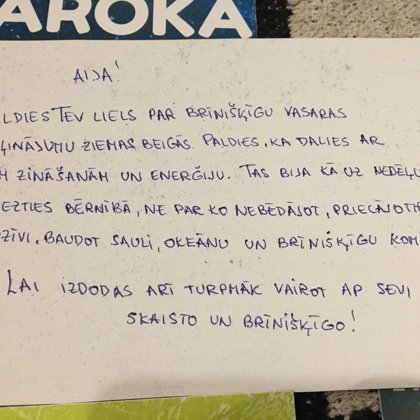 AROKA
AIJA!
LDIES TEV LIELS PAR BRĪNIŠĶĪGU VASARAS
ĻINĀJUMU ZIEMAS BEIGĀS. PALDIES, KA DALIES AR
M ZINĀŠANĀM UN ENERĢIJU. TAS BIJA KĀ UZ NEDĒĻU
EZTIES BĒRNĪBĀ, NE PAR KO NEBĒDĀJOT, PRIECĀJOTI
ZĪVI, BAUDOT SAULI, OKEĀNU UN BRĪNIŠĶĪGU KOM
LAI IZDODAS ARĪ TURPMĀK VAIROT AP SEVI
SKAISTO UN BRĪNIŠĶĪGO!